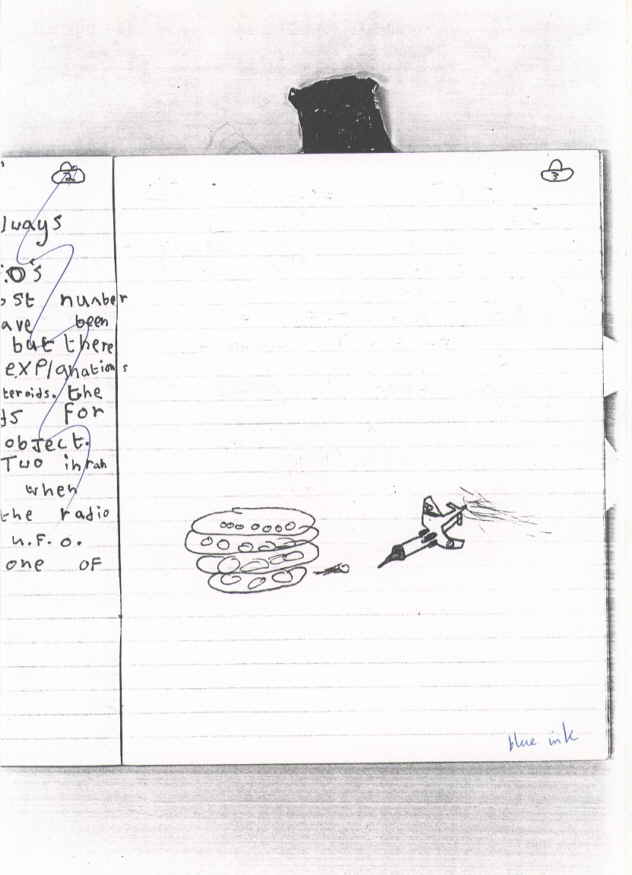 2
3
lways
.o's
ost number
ave been
but there
explanations
teroids. the
ds for
object.
Two inrah
when
the radio
u.F.o.
one OF
blue ink